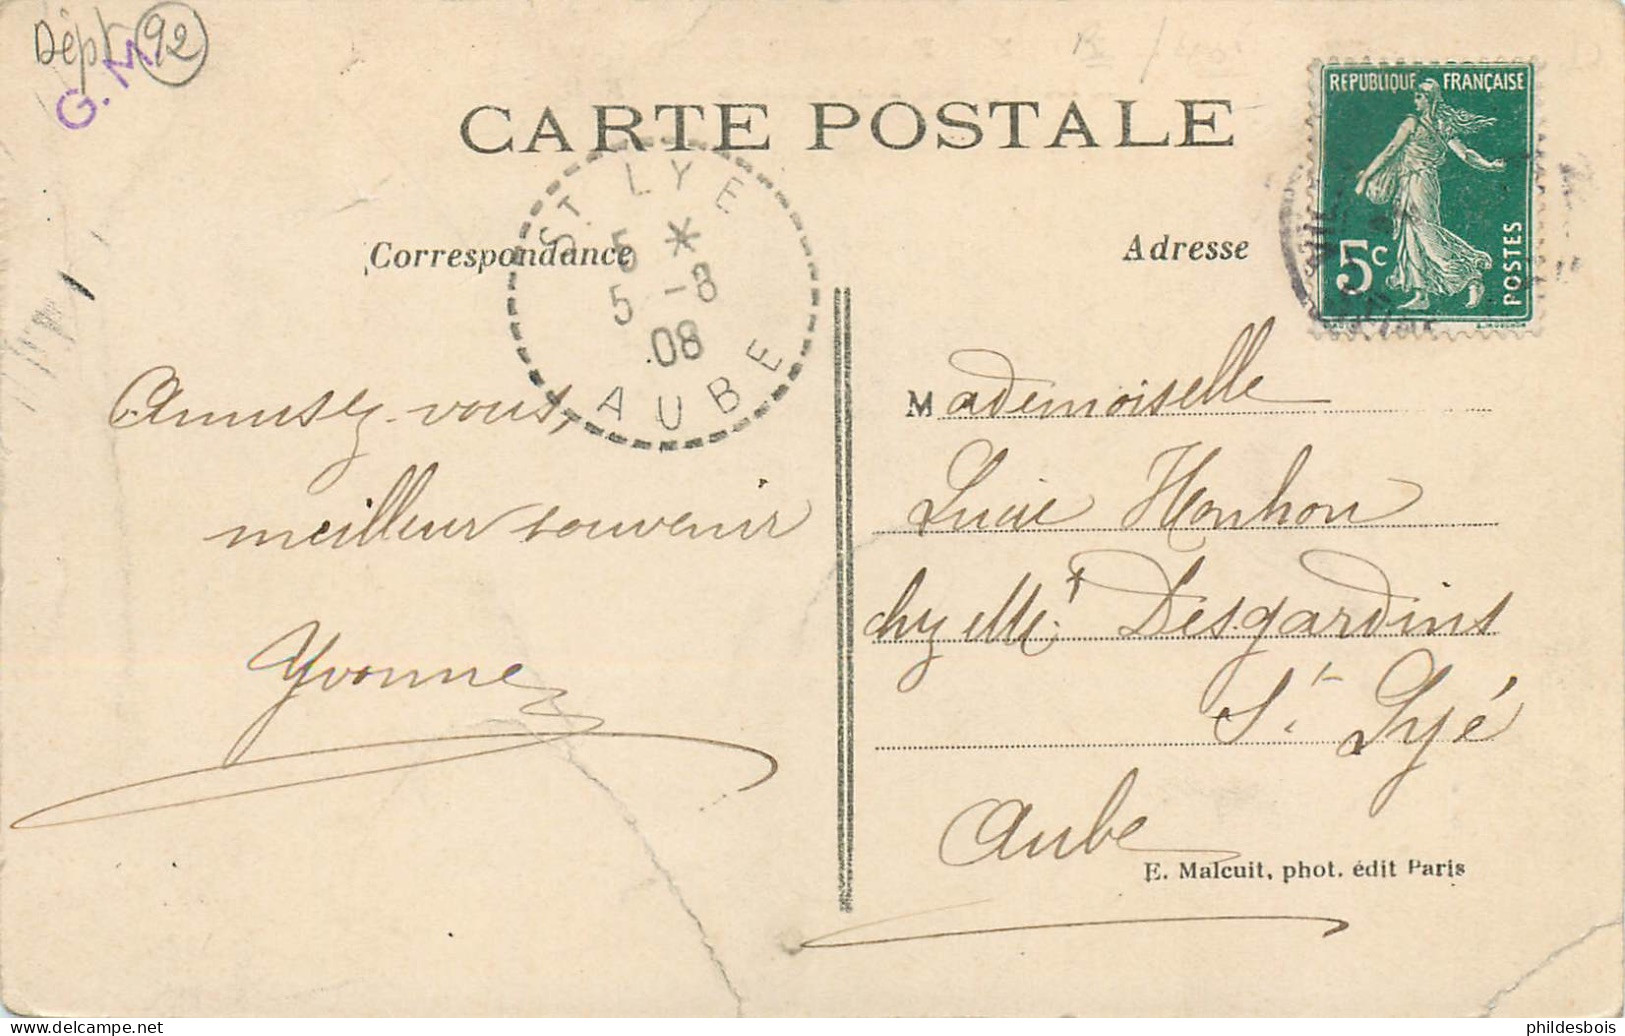 Dépt 92
G. M.
CARTE POSTALE
REPUBLIQUE FRANÇAISE
5c
POSTES
ST LYE
5 *
5 -8
08
AUBE
Correspondance
Adresse
Amusez-vous,
meilleur souvenir
Yvonne
Mademoiselle
Lucie Honhon
chez Mme Desgardins
St. Lyé
Aube
E. Malcuit, phot. édit Paris
phildesbois